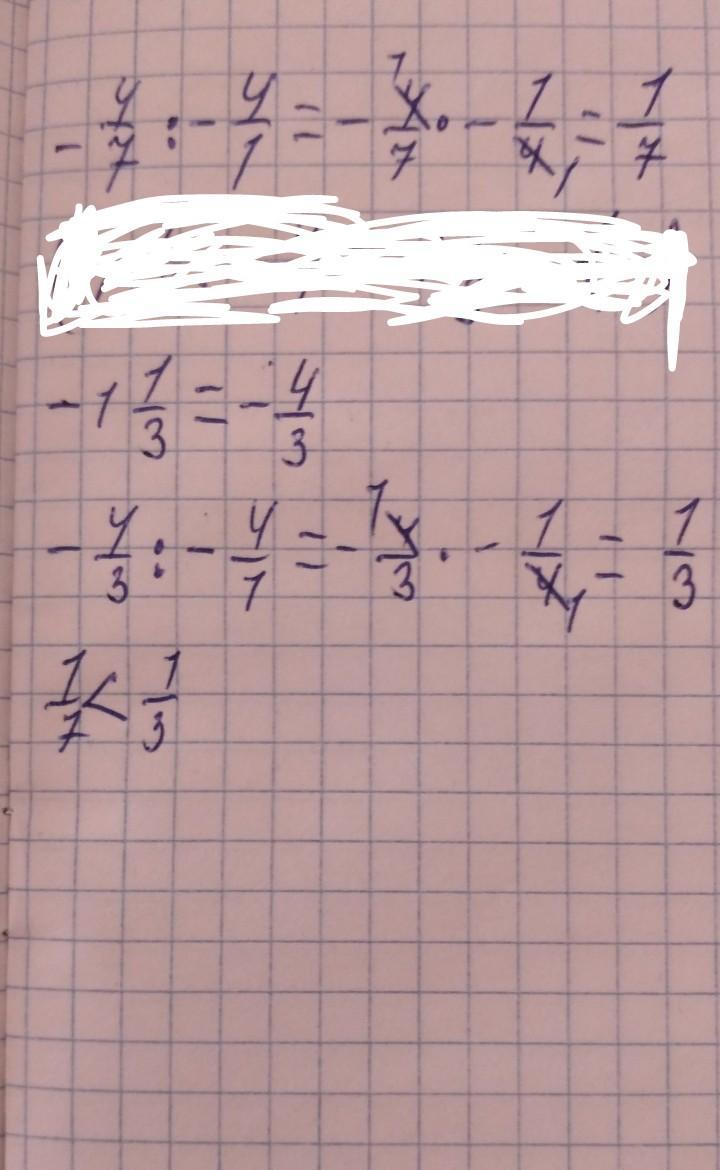 - 4/7 : - 4/1 = - 4/7 1 · - 1/4 1 = 1/7
- 1 1/3 = - 4/3
- 4/3 : - 4/1 = - 1 4/3 · - 1/4 1 = 1/3
1/7 < 1/3